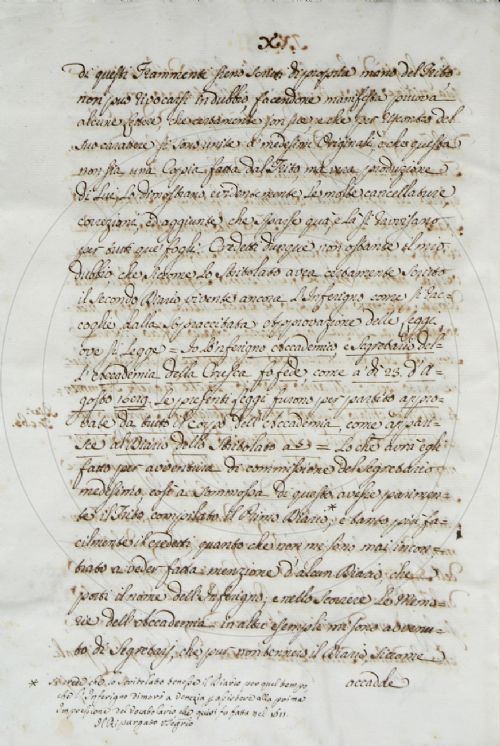 XI.
di questi Frammenti sieno scritti di propria mano del Trito
non può rivocarsi in dubbio facendone manifesta prova
alcune lettere, che certamente son sue che per riscontro del
suo carattere si sono unite a' medesimi Originali, e che questa
non sia una Copia fatta dal Trito, ma vera produzione
di Lui, lo dimostrano evidentemente le molte cancellature,
correzioni, ed aggiunte, che sparse qua, e là si ravvisano
per tutti que' fogli. Credetti dunque non ostante il mio
dubbio che siccome lo Stritolato avea certamente scritto
il secondo Diario vivente ancora l'Inferigno come si rac-
coglie dalla sopraccitata approvazione delle Leggi,
ove si legge = Io Inferigno Accademico, e Segretario del-
l'Accademia della Crusca fo fede, come a' dì 23. d'A-
gosto 1619. le presenti Leggi furono per partito appro-
vate da tutto il Corpo dell'Accademia, come appari-
sce al Diario dello Stritolato a 83 = Lo che avrà egli
fatto per avventura di commissione del Segretario
medesimo, così a sommossa di questo avesse parimen-
te il Trito compilato il Primo Diario,* e tanto più fa-
cilmente il credetti, quanto che non mi sono mai incon-
trato a veder fatta menzione d'alcun Diario, che
porti il nome dell'Inferigno, e nello scorrere le Memo-
rie dell'Accademia in altri esempli mi sono avvenu-
to di Segretarj, che pur non tennero il Diario, siccome
accadde
* che lo Stritolato tenesse il Diario per quel tempo
che l'Inferigno dimorò a Venezia p assistere alla prima
Impressione del Vocabolario che quivi fu fatta nel 1611.